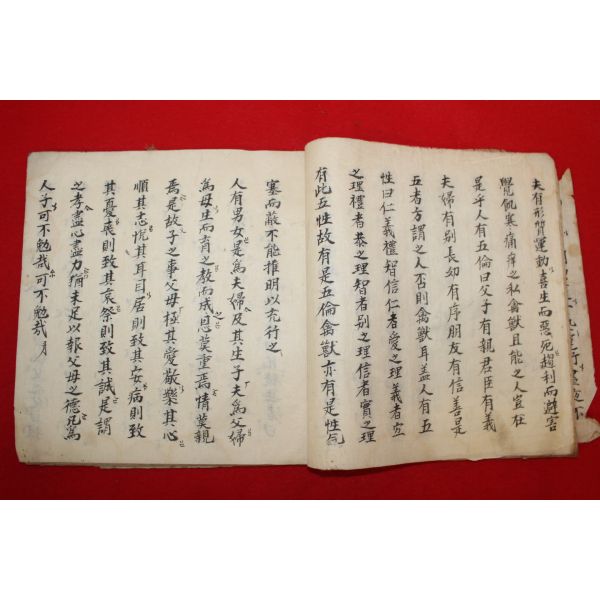 夫有形質運動喜生而惡死趨利而避害
覺飢寒痛痒之私禽獸且能之人豈在
是乎人有五倫曰父子有親君臣有義
夫婦有別長幼有序朋友有信善是
五者方謂之人否則禽獸耳盖人有五
性曰仁義禮智信仁者愛之理義者宜
之理禮者恭之理智者別之理信者實之理
有此五性故有是五倫禽獸亦有是性氣
塞而蔽不能推明以充行之
人有男女是爲夫婦及其生子夫爲父婦
爲母生而育之敎而成恩莫重焉情莫親
焉是故子之事父母極其愛敬樂其心
順其志悅其耳目居則致其安病則致
其憂喪則致其哀祭則致其誠是謂
之孝盡心盡力猶未足以報父母之德凡爲
人子可不勉哉可不勉哉